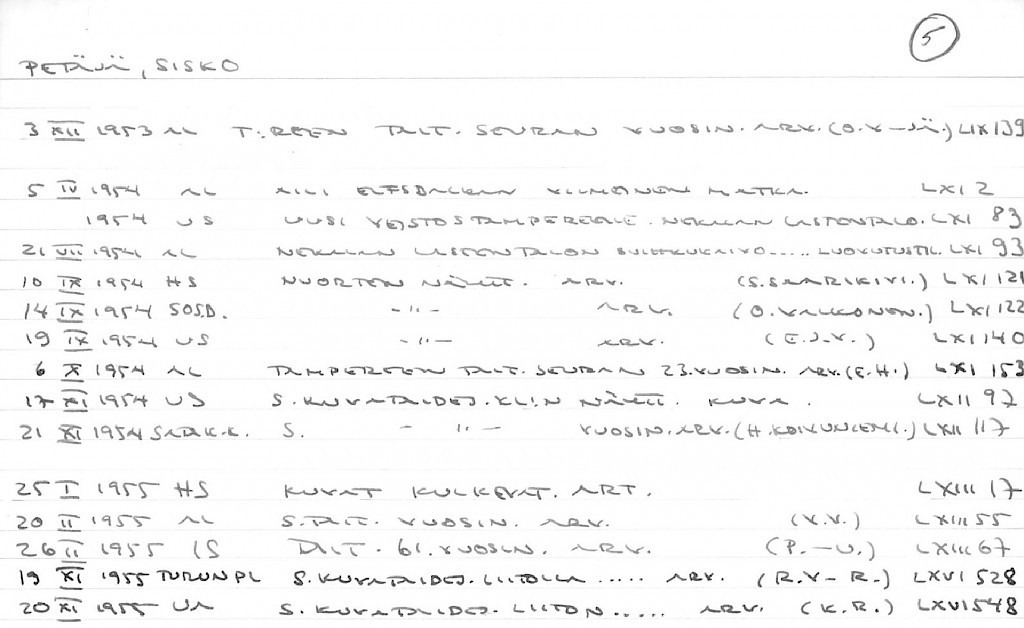 5
PETÄJÄ, SISKO
3 XII 1953 AL T:REEN TAIT. SEURAN VUOSIN. ARV. (O.V-JÄ.) LIX 139
5 IV 1954 AL AILI ELFSDALEAN VIIMEINEN MATKA. LXI 2
1954 US UUSI VEISTOS TAMPEREELLE. NEKALAN LASTENTALO. LXI 83
21 VII 1954 AL NEKALAN LASTENTALON SUIHKUKAIVO..... LUOVUTUSTIL. LXI 93
10 IX 1954 HS NUORTEN NÄYTT. ARV. (S.SAARIKIVI.) LXI 121
14 IX 1954 SOSD. -"- ARV. (O. VALKONEN.) LXI 122
19 IX 1954 US -"- ARV. (E.J.V.) LXI 140
6 X 1954 AL TAMPEREEN TAIT. SEURAN 23. VUOSIN. ARV. (E.H.) LXI 153
17 XI 1954 US S. KUVATAIDEJ. KL:N NÄYTT. KUVA. LXII 97
21 XI 1954 SATAK.K. S. -"- VUOSIN. ARV. (H. KOIVUNIEMI.) LXII 117
25 I 1955 HS KUVAT KULKEVAT. ART. LXIII 17
20 II 1955 AL S.TAIT. VUOSIN. ARV. (V.V.) LXIII 55
26 II 1955 IS TAIT. 61. VUOSIN. ARV. (P.-U.) LXIII 67
19 XI 1955 TURUN PL S. KUVATAIDEJ. LIITOLLA ..... ARV. (R.V-R.) LXVI 528
20 XI 1955 UA S. KUVATAIDEJ. LIITON..... ARV. (K.R.) LXVI 548